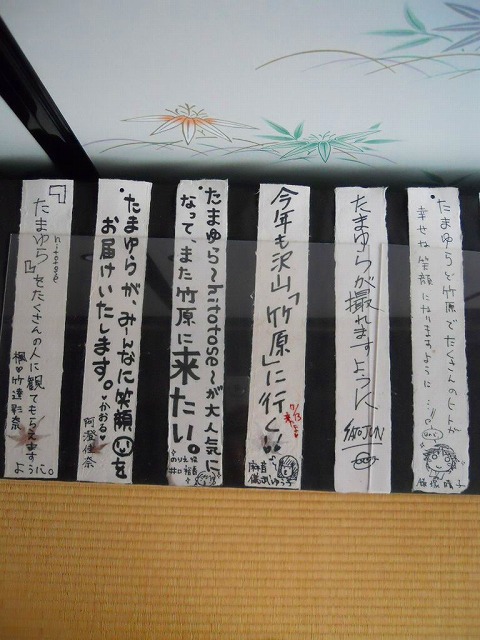 たまゆらで竹原でたくさんのヒトが
幸せな笑顔になりますように
飯塚晴子
たまゆらが撮れますように
SATOJUN
今年も沢山「竹原」に行く!!
麻音
儀武ゆう子
たまゆら〜hitotose〜が大人気に
なって、また竹原に来たい。
のりえ役
井口裕香
たまゆらが、みーんなに笑顔を
お届けいたします。
♥かおる♥
阿澄佳奈
『たまゆら
hitotose
』をたくさんの人に観てもらえます
ように。
楓♥竹達彩奈